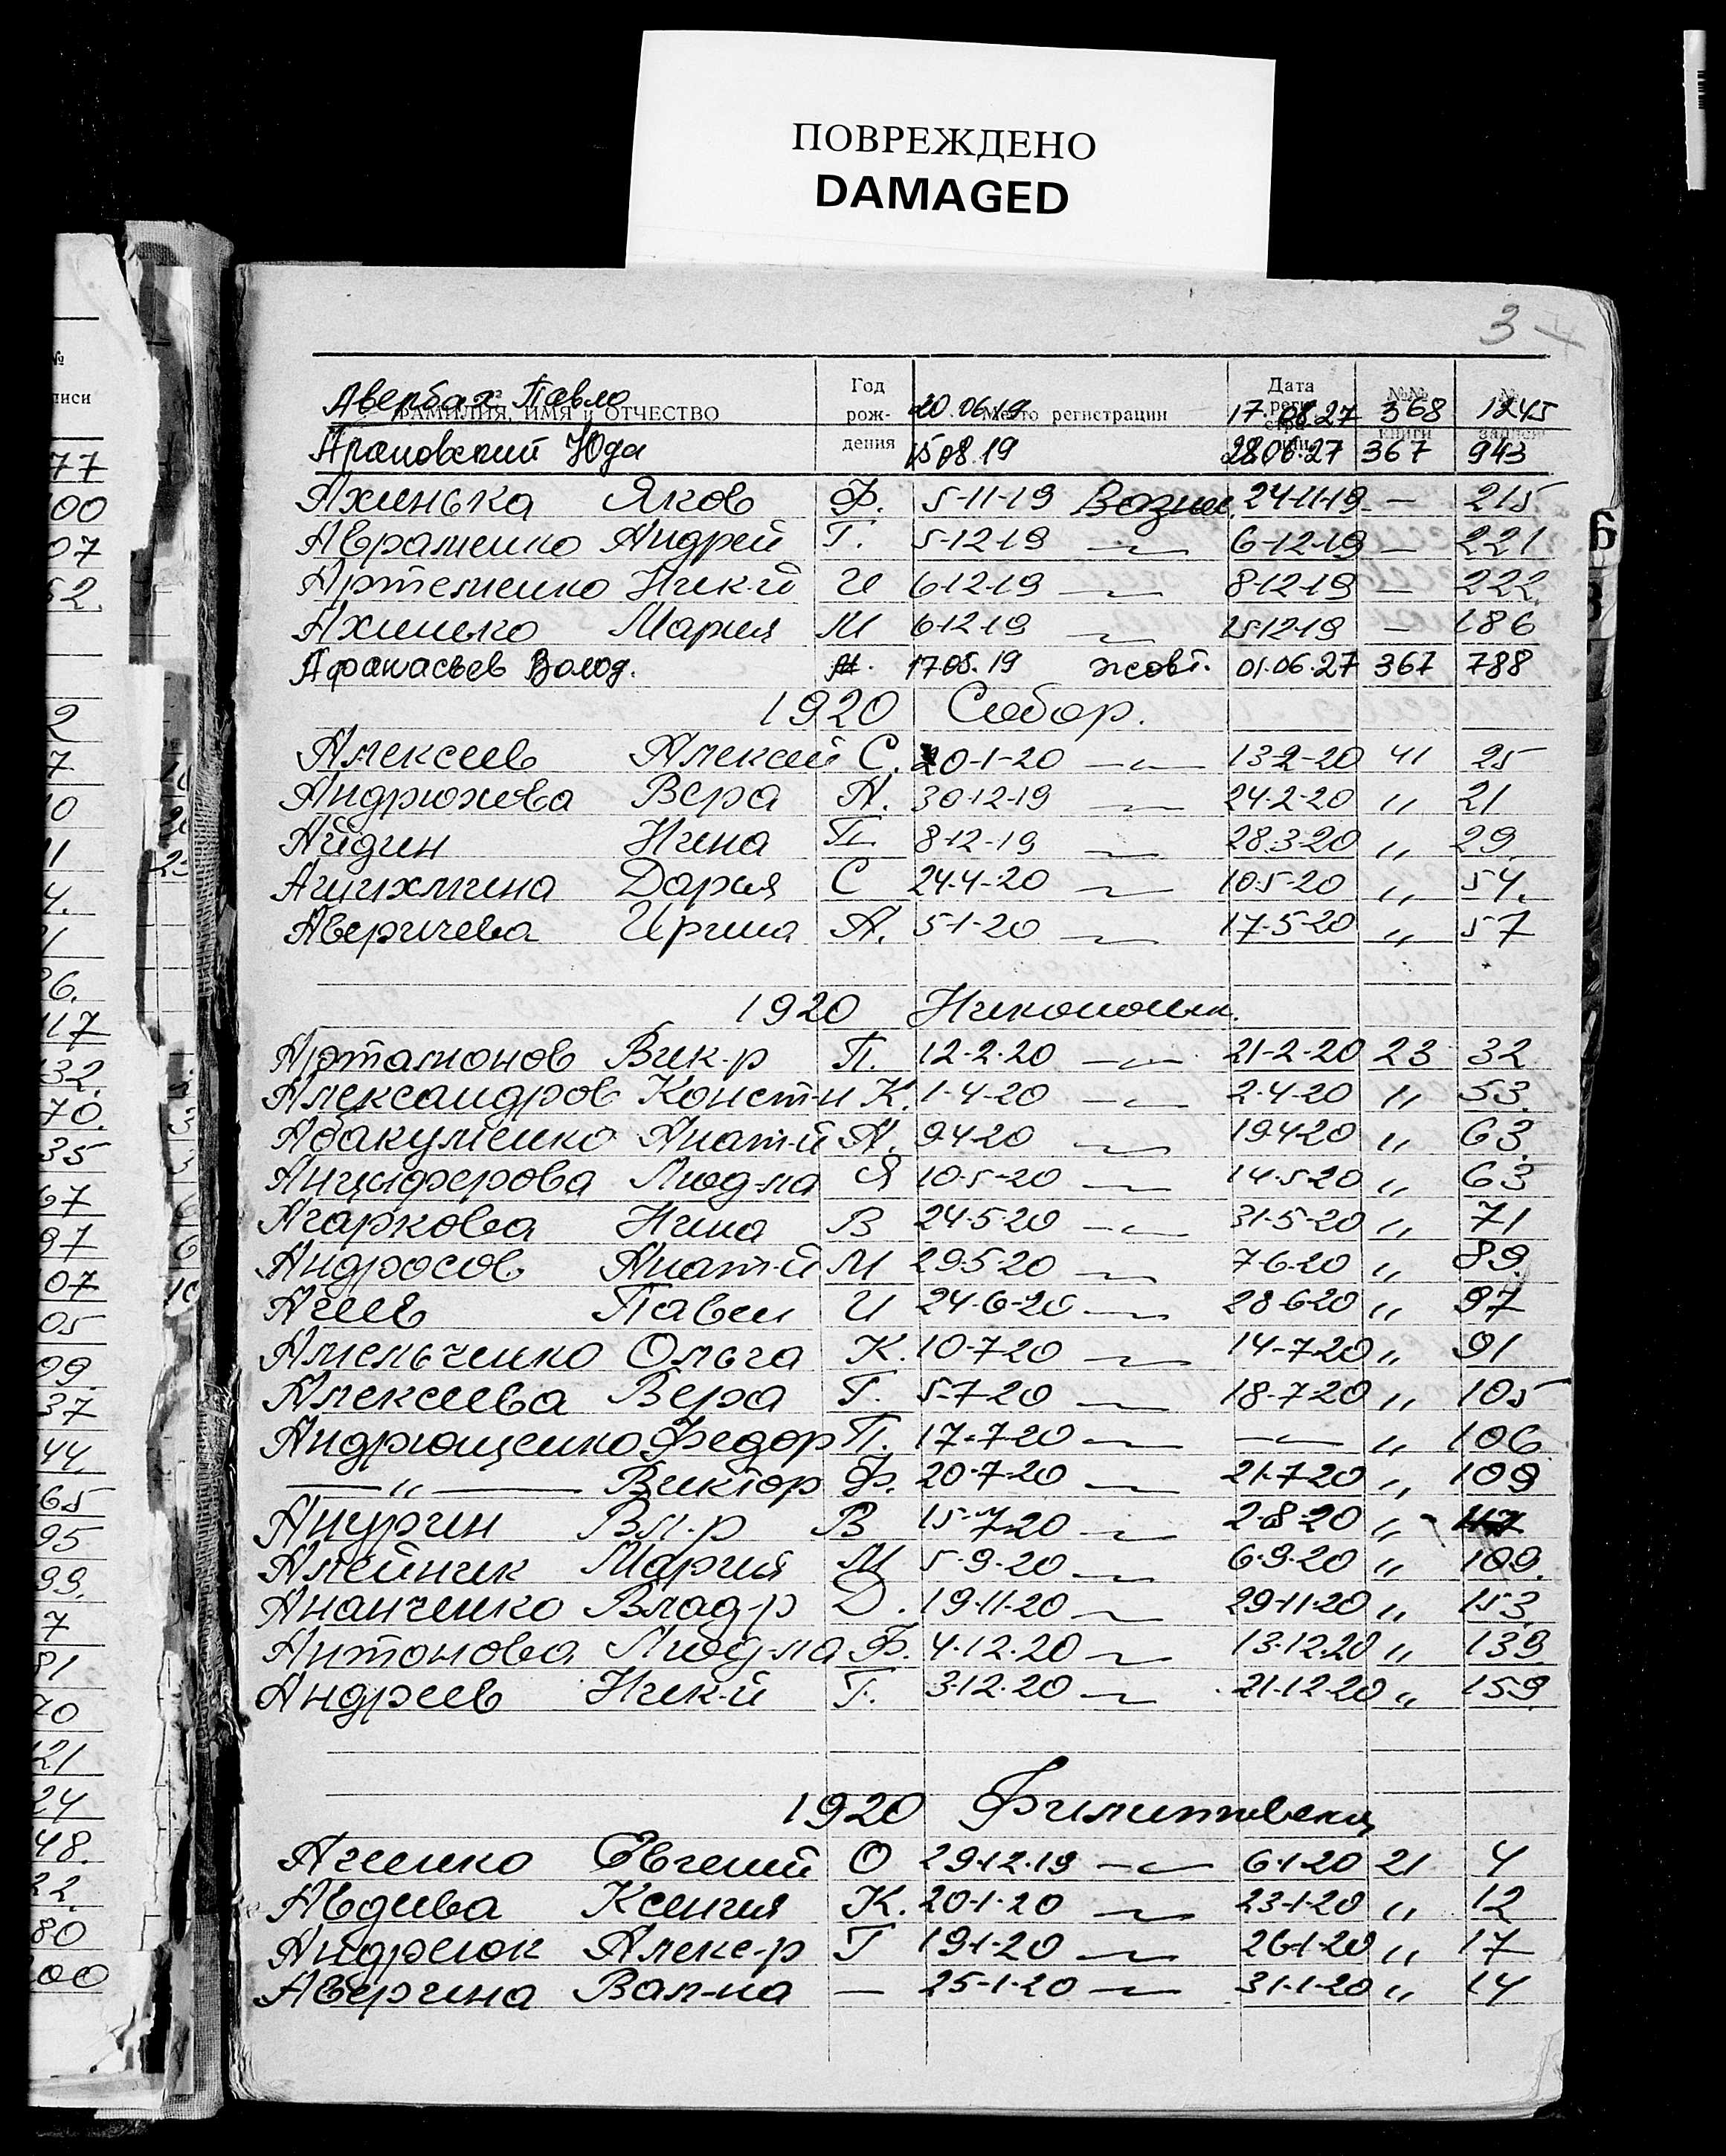 ПОВРЕЖДЕНО
DAMAGED
3
ФАМИЛИЯ, ИМЯ и ОТЧЕСТВО Год рождения Место регистрации Дата регистрации №№ книги № записи
Авербах Павло 20.06.19 17.08.27 368 1245
Арановский Юда 15.08.19 28.06.27 367 943
Ахинька Яков Ф. 5-11-19 Вознес. 24-11-19 — 215
Авраменко Андрей Г. 5-12-19 —〃— 6-12-19 — 221
Артеменко Ник-й И 6-12-19 —〃— 8-12-19 — 222
Ахинько Мария М 6-12-19 —〃— 15-12-19 — 186
Афанасьев Волод. М. 17.05.19 жовт. 01.06.27 367 788
1920 Собор.
Алексеев Алексей С. 20-1-20 —〃— 13-2-20 41 25
Андрюхова Вера А. 30-12-19 —〃— 24-2-20 〃 21
Айдин Нина П 8-12-19 —〃— 28.3-20 〃 29
Ащихмина Дария С 24-4-20 —〃— 10-5-20 〃 54.
Аверичева Ирина А. 5-1-20 —〃— 17-5-20 〃 57
1920 Никопольск.
Артамонов Вик-р П. 12-2-20 —〃— 21-2-20 23 32
Александров Конст-н К. 1-4-20 —〃— 2-4-20 〃 53.
Абакуменко Анат-й А. 9-4-20 —〃— 19-4-20 〃 63.
Анцыферова Люд-ла Я 10-5-20 —〃— 14-5-20 〃 63
Агаркова Нина В 24-5-20 —〃— 31-5-20 〃 71
Андросов Анат-й М 29-5-20 —〃— 7-6-20 〃 89.
Агеев Павел И 24-6-20 —〃— 28-6-20 〃 97
Амельченко Ольга К. 10-7-20 —〃— 14-7-20 〃 91
Алексеева Вера Г. 5-7-20 —〃— 18-7-20 〃 105
Андрющенко Федор П. 17-7-20 —〃— —〃— 〃 106
—〃— Виктор Ф. 20-7-20 —〃— 21-7-20 〃 109
Анурин Вл.-р В 15-7-20 —〃— 2-8-20 〃 117
Алейник Мария М 5-9-20 —〃— 6-9-20 〃 109.
Ананченко Влад-р D. 19-11-20 —〃— 29-11-20 〃 153
Антонова Люд-ла Ф. 4-12-20 —〃— 13-12-20 〃 139.
Андреев Ник-й Г. 3-12-20 —〃— 21-12-20 〃 159
1920 Филипповская
Агеенко Евгений О 29-12-19 —〃— 6-1-20 21 4
Авдиева Ксения К. 20-1-20 —〃— 23-1-20 〃 12
Андреюк Алекс-р Г 19-1-20 —〃— 26-1-20 〃 17
Аверчина Вал-на — 25-1-20 —〃— 31-1-20 〃 14